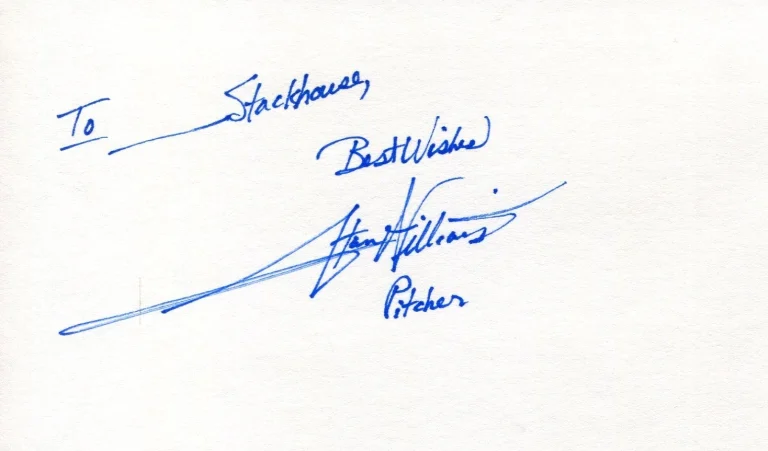 To Stackhouse,
Best Wishes
Williams
Pitcher